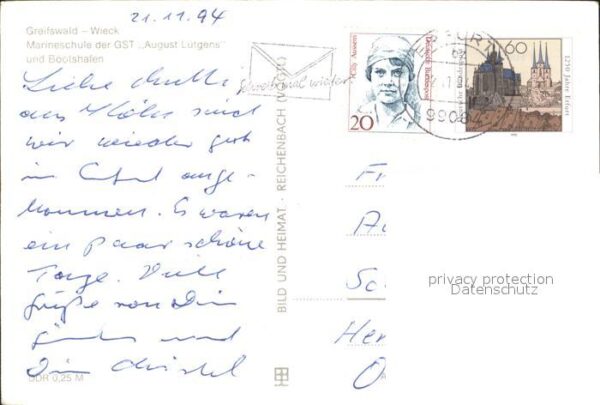 21.11.94
Greifswald – Wieck
Marineschule der GST "August Lütgens"
und Bootshafen
Liebe Mutti,
aus
wir wieder gut
in Erfurt ange-
kommen. Es waren
ein paar schöne
Tage. Viele
Grüße von Din
und
Din Christel
DDR 0,25 M
BILD UND HEIMAT · REICHENBACH (VOGTL)
Schreib mal wieder
Cilly Aussem
Deutsche Bundespost
20
ERFURT
99084
60
1250 Jahre Erfurt
Fr
Au
Sc
Her
O
privacy protection
Datenschutz